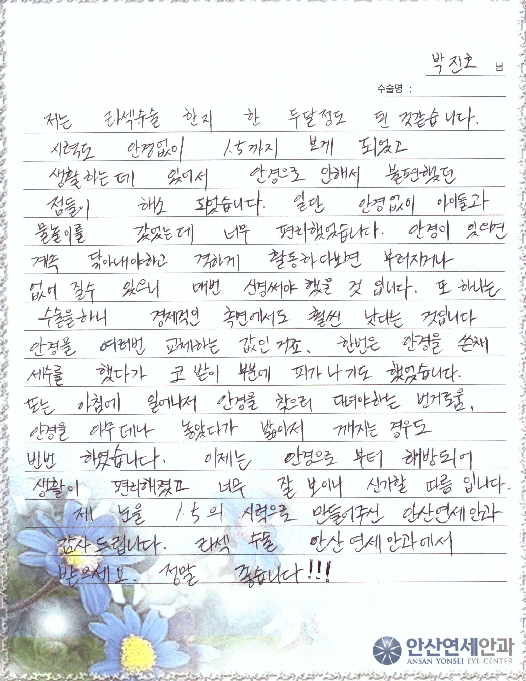 박진호 님
수술명 :
저는 라섹수술 한지 한 두달정도 된 것같습니다.
시력도 안경없이 1.5까지 보게 되었고
생활하는데 있어서 안경으로 인해서 불편했던
점들이 해소 되었습니다. 일단 안경없이 아이들과
물놀이를 갔었는데 너무 편리했었습니다. 안경이 있으면
계속 닦아내야하고 격하게 활동하다보면 부러지거나
없어 질수 있으니 매번 신경써야 했을 것 입니다. 또 하나는
수술을하니 경제적인 측면에서도 훨씬 낫다는 것입니다
안경을 여러번 교체하는 값인 거죠. 한번은 안경을 쓴채
세수를 했다가 코 받이 부분에 피가 나기도 했었습니다.
또는 아침에 일어나서 안경을 찾으러 다녀야하는 번거로움,
안경을 아무데나 놓았다가 밟아서 깨지는 경우도
빈번 하였습니다. 이제는 안경으로 부터 해방되어
생활이 편리해졌고 너무 잘 보이니 신기할 따름 입니다.
제 눈을 1.5의 시력으로 만들어주신 안산연세안과
감사드립니다. 라섹 수술 안산연세안과에서
받으세요. 정말 좋습니다!!!
안산연세안과
ANSAN YONSEI EYE CENTER